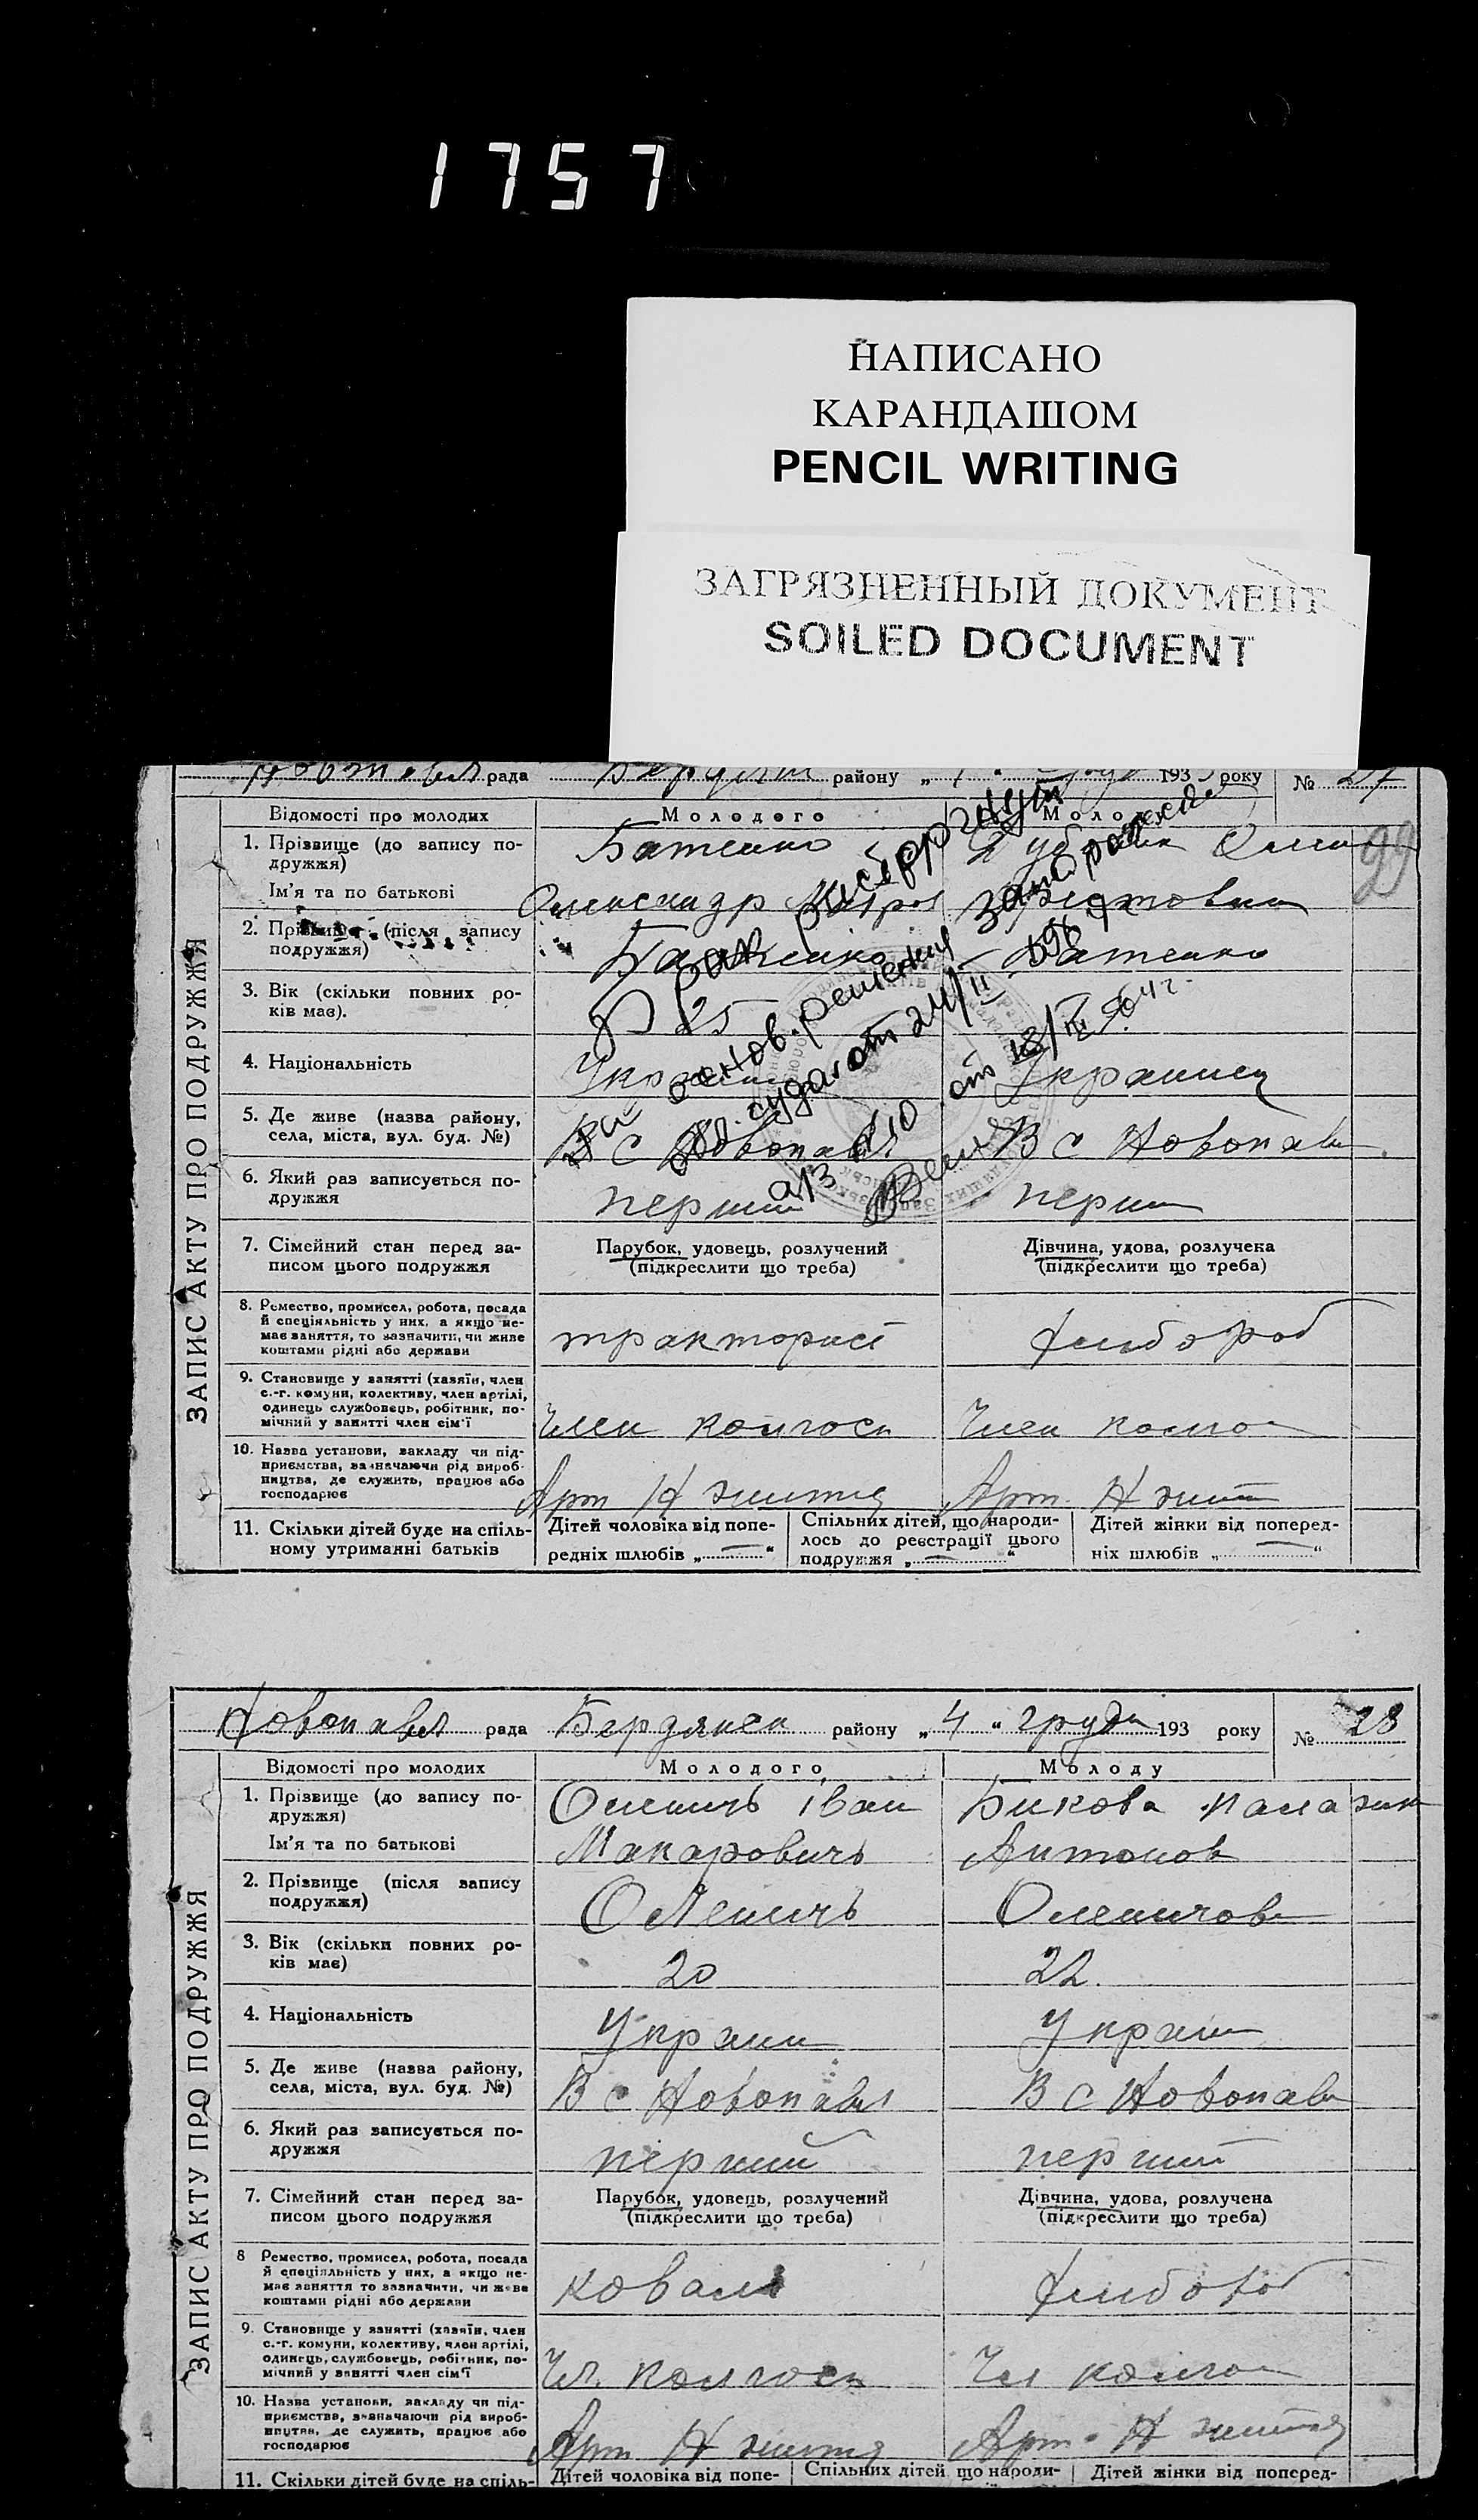 1757
НАПИСАНО
КАРАНДАШОМ
PENCIL WRITING
ЗАГРЯЗНЕННЫЙ ДОКУМЕНТ
SOILED DOCUMENT
рада району 193 року № 27
ЗАПИС АКТУ ПРО ПОДРУЖЖЯ
Відомості про молодих Молодого
1. Прізвище (до запису по- Батенко
дружжя)
Ім'я та по батькові Олександр
2. Прізвище (після запису Батенко Батенко
подружжя)
3. Вік (скільки повних ро- 25
ків має).
4. Національність
5. Де живе (назва району, В с Новопавл В с Новопав
села, міста, вул. буд. №)
6. Який раз записується по- перший перш
дружжя
7. Сімейний стан перед за- Парубок, удовець, розлучений Дівчина, удова, розлучена
писом цього подружжя (підкреслити що треба) (підкреслити що треба)
8. Ремество, промисел, робота, посада
й спеціяльність у них, а якщо не-
має заняття, то зазначити, чи живе тракторист хлібороб
коштами рідні або держави
9. Становище у занятті (хазяїн, член
с.-г. комуни, колективу, член артілі,
одинець службовець, робітник, по- Член колгосп Член колго
мічний у занятті член сім'ї
10. Назва установи, закладу чи під-
приємства, зазначаючи рід вироб-
ництва, де служить, працює або Арт Н життя Арт. Н житт
господарює
11. Скільки дітей буде на спіль- Дітей чоловіка від попе- Спільних дітей, що народи- Дітей жінки від поперед-
ному утриманні батьків редніх шлюбів „ — “ лось до реєстрації цього ніх шлюбів „ — “
подружжя „ — “
Брак расторгнут
на основ. решения
суда от 24/II
а/з №10 от 18/III
99
Новопавл рада Бердянськ району „4“ грудн 193 року № 28
ЗАПИС АКТУ ПРО ПОДРУЖЖЯ
Відомості про молодих Молодого Молоду
1. Прізвище (до запису по- Олешичь Іван Бикова
дружжя)
Ім'я та по батькові Макаровичь Антонов
2. Прізвище (після запису Олешичь Олешичова
подружжя)
3. Вік (скільки повних ро- 20 22.
ків має)
4. Національність Украин Украин
5. Де живе (назва району, В с Новопавл В с Новопав
села, міста, вул. буд. №)
6. Який раз записується по- перший перший
дружжя
7. Сімейний стан перед за- Парубок, удовець, розлучений Дівчина, удова, розлучена
писом цього подружжя (підкреслити що треба) (підкреслити що треба)
8 Ремество, промисел, робота, посада
й спеціяльність у них, а якщо не-
має заняття то зазначити, чи живе коваль хлібороб
коштами рідні або держави
9. Становище у занятті (хазяїн, член
с.-г. комуни, колективу, член артілі,
одинець, службовець, робітник, по- Чл. колгосп Чл колго
мічний у занятті член сім'ї
10. Назва установи, закладу чи під-
приємства, зазначаючи рід вироб-
ництва, де служить, працює або Арт Н життя Арт. Н життя
господарює
11. Скільки дітей буде на спіль- Дітей чоловіка від попе- Спільних дітей що народи- Дітей жінки від поперед-